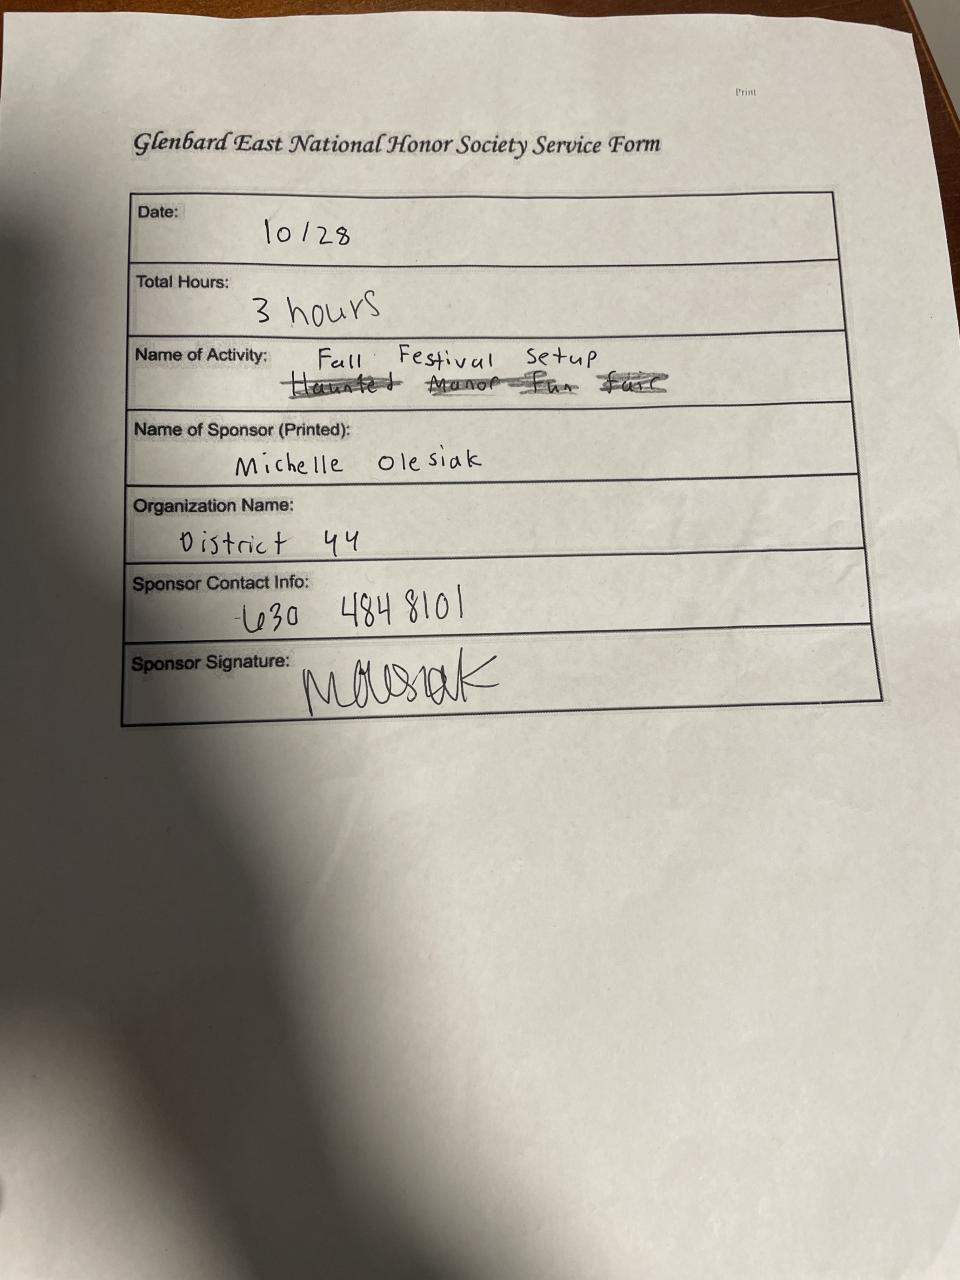 Print
Glenbard East National Honor Society Service Form
Date:
10/28
Total Hours:
3 hours
Name of Activity: Fall Festival Setup
Haunted Manor Fun Fair
Name of Sponsor (Printed):
Michelle Olesiak
Organization Name:
District 44
Sponsor Contact Info:
630 484 8101
Sponsor Signature: MOlesiak